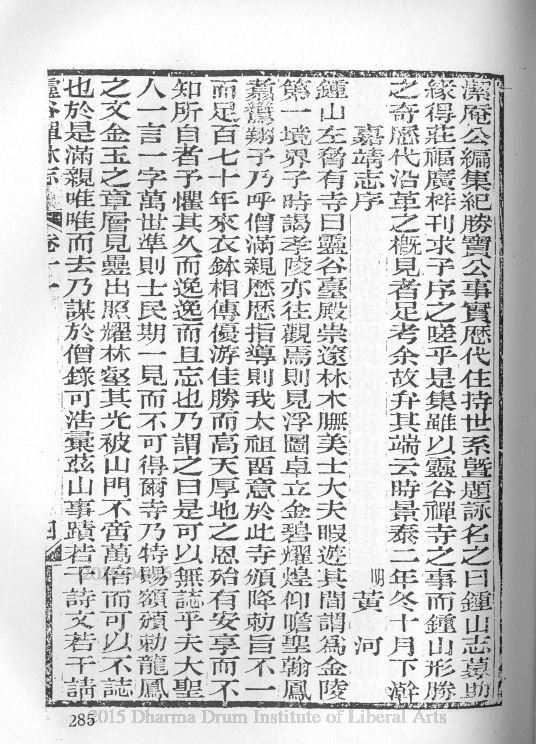 潔庵公編集紀勝寶公事實歷代住持世系曁題詠名之曰鍾山志募助
緣得莊福廣梓刊求予序之嗟乎是集雖以靈谷禪寺之事而鍾山形勝
之奇歷代沿革之槪見者足考余故弁其端云時景泰二年冬十月下澣
嘉靖志序
明黃河
鍾山左脅有寺曰靈谷臺殿崇邃林木膴美士大夫暇遊其間謂爲金陵
第一境界予時謁孝陵亦往觀焉則見浮圖卓立金碧耀煌仰瞻聖翰鳳
翥鸞翔予乃呼僧滿親歷歷指導則我太祖畱意於此寺頒降勅旨不一
而足百七十年來衣鉢相傳優游佳勝而高天厚地之恩殆有安享而不
知所自者予懼其久而逸逸而且忘也乃謂之曰是可以無誌乎夫大聖
人一言一字萬世準則士民期一見而不可得爾寺乃特賜額頒勅龍鳳
之文金玉之章層見疊出照耀林壑其光被山門不啻萬倍而可以不誌
也於是滿親唯唯而去乃謀於僧錄可浩彙茲山事蹟若干詩文若干請
靈谷禪林志 卷十一 四
285
2015 Dharma Drum Institute of Liberal Arts